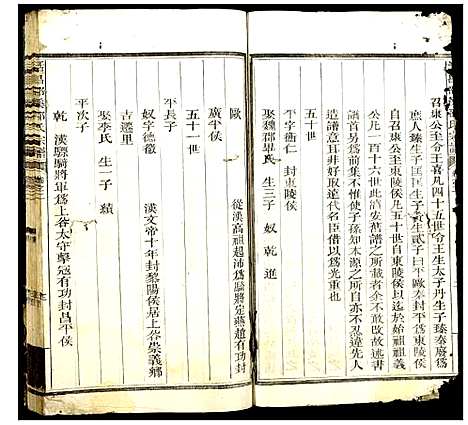 召康公至令王喜凡四十五世令王生太子丹生子臻秦廢爲
庶人臻生子匡匡生子貳子曰平歐平封平爲東陵侯
自召康公至東陵侯凡五十世自東陵侯以至於始祖祖義
公凡一百十六世此消安舊譜之所載者余不敢故述書
譜首另爲前集不惟使子孫知本源之所自亦不忍違先人
遺意耳非好取遠代名臣借以爲光重也
平字衛仁 封東陵侯
娶魏郡畢氏 生三子 奴 乾 進
歐 從漢高祖起沛爲騎將定燕趙有功封
廣平侯
五十一世
平長子
奴字德徵 漢文帝十年封黎陽侯居上谷崇義鄉
吉遷里
娶李氏 生一子 穎
平次子
乾 漢驃騎將軍爲上谷太守擊冦有功封昌平侯